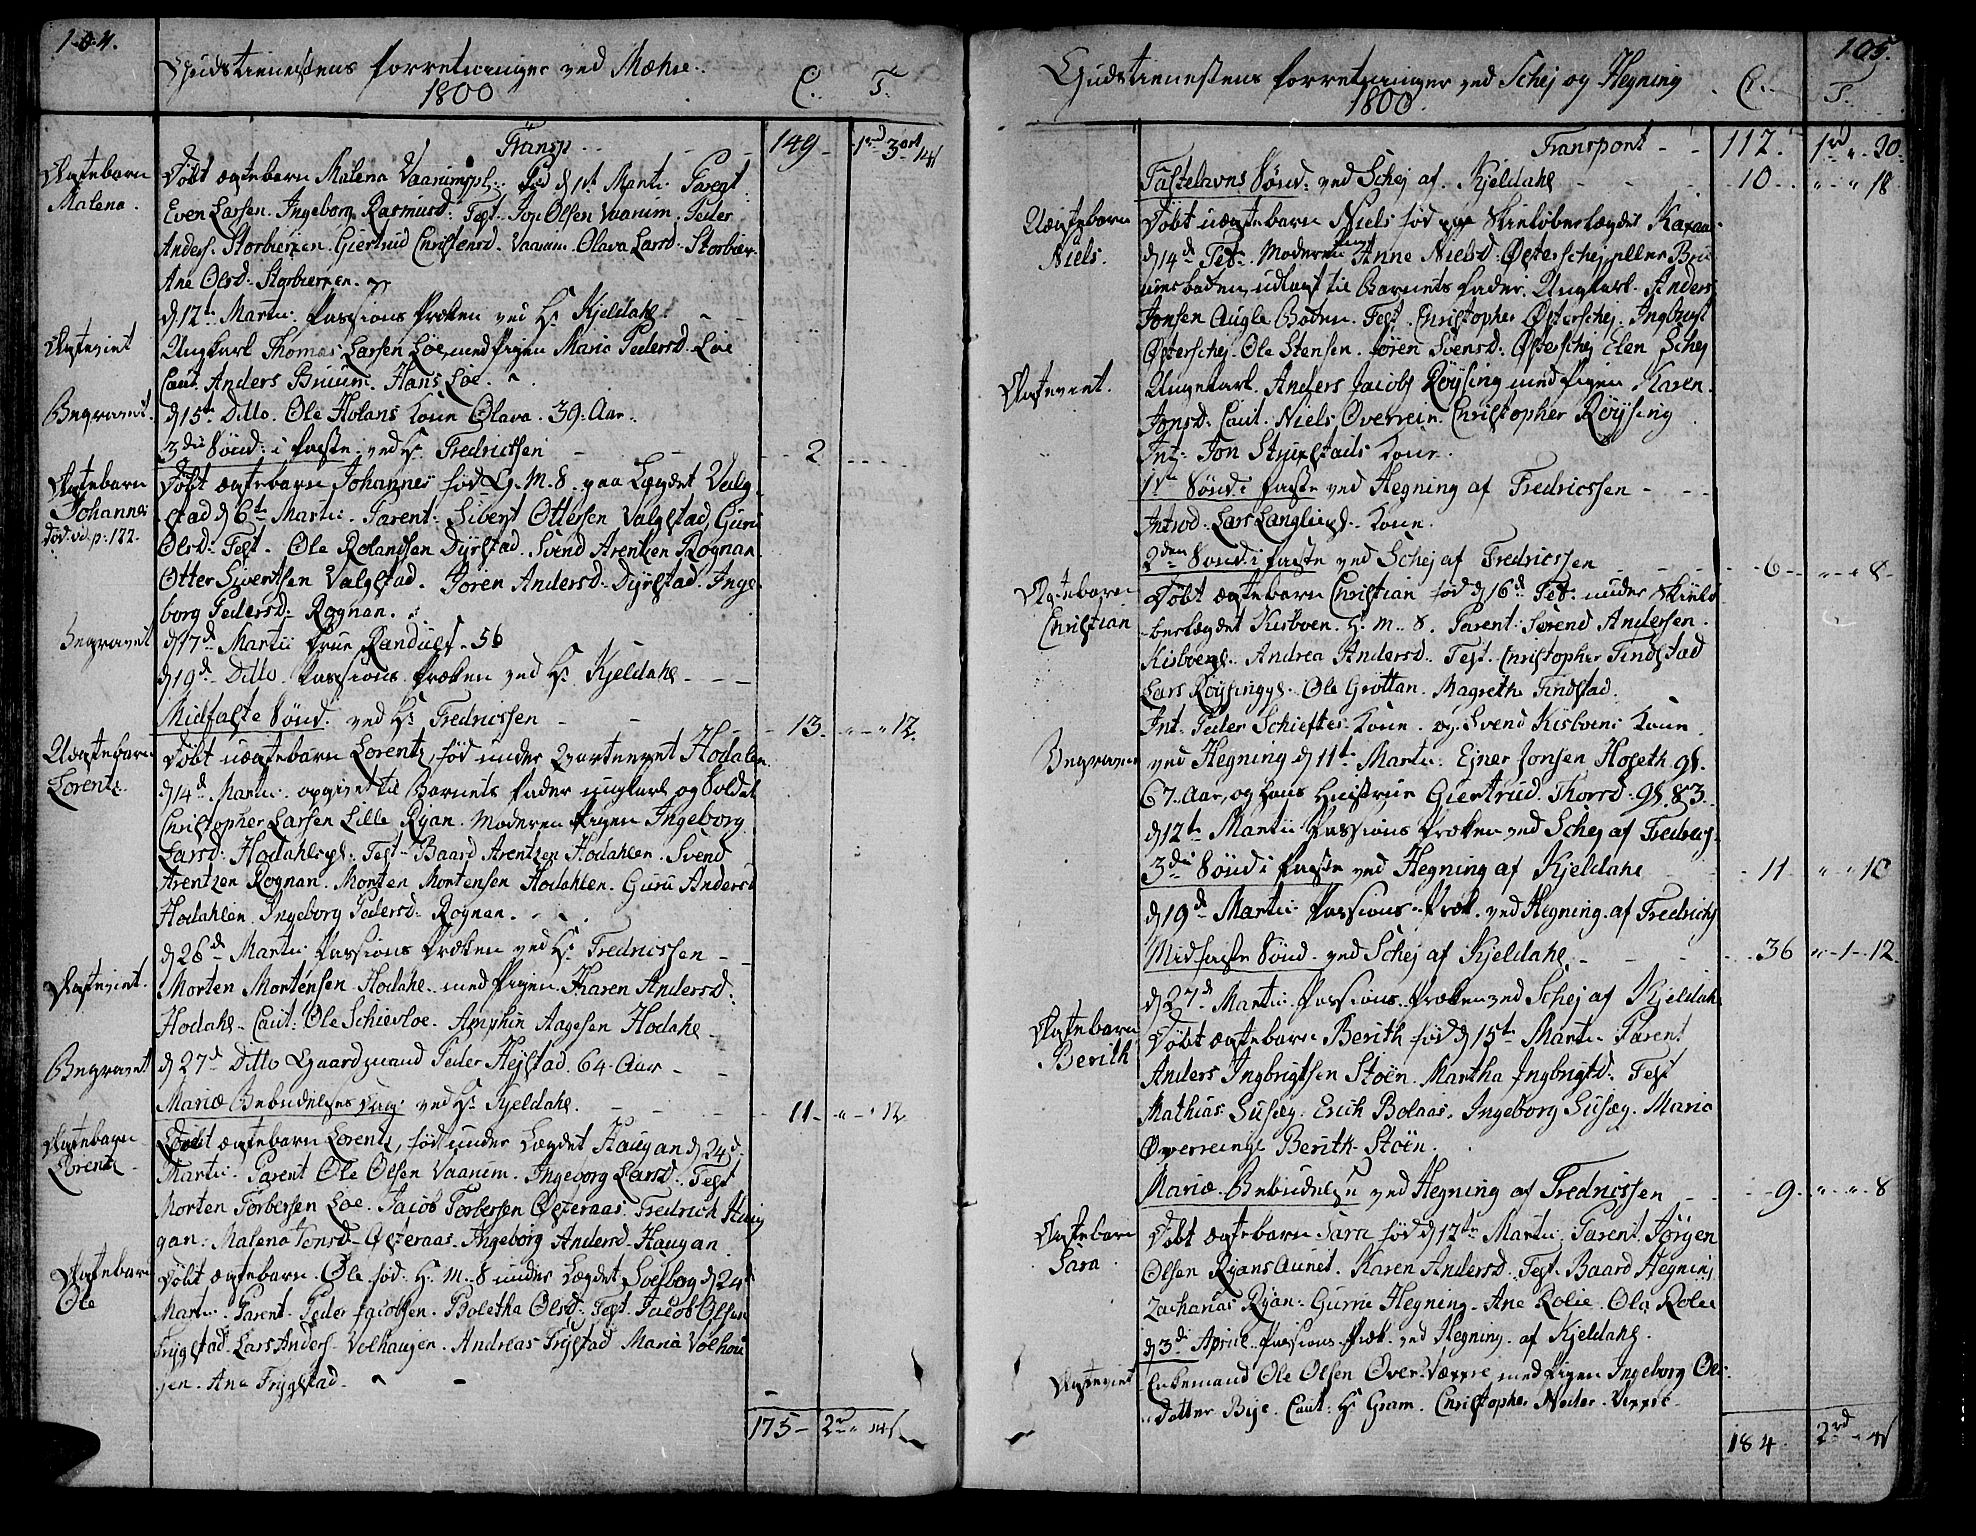 104.
Gudstienestens forretninger ved Mæhre.
1800
C. T.
Transp. 149 1rd 3ort 14s
Ægtebarn Malena.
Døbt ægtebarn Malena Vaarumspl: fød d 1st Marti. Parent
Even Larsen. Ingeborg Rasmusd: Test. Jon Olsen Vaarum. Peder
Anders. Storbierzen. Giertrud Christensd. Vaarum. Olava Larsd: Storbier.
Ane Olsd: Storbierzen.
d 12te Martii Passions Præken ved Hr Kjeldahl
Ægteviet
Ungkarl Thomas Larsen Loe med Pigen Maria Pedersd. Loe
Caut. Anders Bruum. Hans Loe.
Begravet.
d 15te Ditto. Ole Holans Kone Olava. 39. Aar.
3die Sønd: i faste. ved Hr Fredricssen 2
Ægtebarn Johannes død vid. p. 122.
Døbt ægtebarn Johannes fød H. M. D. paa Lægdet Valg
stad d 6te Martii. Parent: Sivert Ottersen Valgstad, Guru
Olsd: Test. Ole Rolandsen Dyrstad. Svend Arentzen Rognan
Otter Sivertsen Valgstad. Joren Andersd. Dyrstad. Inge
borg Pedersd. Rognan.
Begravet
d 17d Martii Enke Randue 56
d 19d Ditto Passions Præken ved Hr Kjeldahl
Midfaste Sønd. ved Hr Fredricssen 13. " " 12.
Uægtebarn Lorentz.
Døbt uægtebarn Lorentz, fød under Qvarteret Hodalen
d 14d Martii opgivet til Barnets fader ungkarl og Soldat
Christopher Larsen Lille Ryan. Moderen Pigen Ingeborg
Larsd. Hodahlspl: Test Baard Arentzen Hodahlen. Svend
Arentzen Rognan. Morten Mortensen Hodahlen. Guru Andersd
Hodahlen. Ingeborg Pedersd. Rognan.
d 26d Martii Passions Præken ved Hr Fredricssen
Ægteviet.
Morten Mortensen Hodahl med Pigen Karen Andersd.
Hodahl. Caut: Ole Schievloe. Amphin Aagesen Hodahl
Begravet
d 27d Ditto Gaardmand Peder Hejstad. 64. Aar
Mariæ Bebudelses Dag. ved Hr Kjeldahl. 11 " " 12
Ægtebarn Lorentz
Døbt ægtebarn Lorentz, fød under Lægdet Haugan d 24d
Martii. Parent Ole Olsen Vaarum. Ingeborg Larsd. Test
Morten Torbersen Loe. Jacob Torbersen Østeraas. Fredrich Hau
gan. Malena Jonsd. Østeraas. Ingeborg Andersd. Haugan.
Ægtebarn Ole
Døbt ægtebarn Ole fød H. M. D. under Lægdet d 24d
Martii. Parent. Peder Jacobsen. Boletha Olsd: Test. Jacob Olsen
Trygstad. Lars Anders. Volhaugen. Andreas Trystad Maria Volhou
gen. Ana Trygstad.
175 2rd " 14s
105.
Gudstienestens forretninger ved Schej og Hegning
1800
C. T.
Transport 112. 1rd " 20.
Fastelavns Sønd. ved Schej af Kjeldahl 10 " " 18
Uægtebarn Niels.
Døbt uægtebarn Niels fød Skieløberlægdet
d 14d Feb. Moderen Anne Nielsd Østerschej eller Bru
uer boden, udlagt til Barnets fader. Ungkarl Anders
Jonsen Augle Boden. Test. Christopher Østerschej. Ingbrigt
Østerschej. Ole Stensen. Jøren Svensd. Østerschej Elen Schej
Ægteviet.
Ungkarl. Anders Jacobs Røysing med Pigen Karen
Jonsd. Caut. Niels Overrein. Christopher Røysing
Int. Jon Struxstads Kone.
1ste Sønd. i faste ved Hegning af Fredricssen
Introd. Lars Kone.
2den Sønd. i faste ved Schej af Fredricssen 6 " " 8
Ægtebarn Christian
Døbt ægtebarn Christian fød d 16d Feb. under Skielø
berlægdet Kisboen. H. M. D. Parent: Svend Andersen.
Andrea Andersd. Test. Christopher Findstad
Lars Røysing. Ole Grøttan. Magrethe Findstad.
Int. Peder Schieftes Kone og Svend Kisboens Kone
Begravet
ved Hegning d 11te Martii. Ejner Jonsen Hoseth.
67. Aar, og hans Hustrue Giertrud Thorsd. 83.
d 12te Martii Passions Præken ved Schej af Fredricss.
3die Sønd. i faste ved Hegning af Kjeldahl 11 " " 10
d 19d Martii Passions Præk. ved Hegning af Fredrics
Midfaste Sønd. ved Schej af Kjeldahl 36 " 1 12
d 27d Martii. Passions Præken ved Schej af Kjeldahl
Ægtebarn Berith
Døbt ægtebarn Berith fød d 15te Martii. Parent
Anders Ingbrigtsen Stoen. Martha Ingbrigtd. Test
Mathias Susæg. Erich Bolaas. Ingeborg Susæg. Maria
Overrein Berith Stoen.
Mariæ Bebudelse ved Hegning af Fredricssen 9. " " 8
Ægtebarn Sara
Døbt ægtebarn Sara fød d 12te Martii. Parent. Jørgen
Olsen Ryansaunet. Karen Andersd. Test. Baard Hegning
Zacharias Ryan. Gurrie Hegning. Ane Rolie. Ola Rolie
d 3die April Passions Præk. ved Hegning af Kjeldahl.
Ægteviet
Enkemand Ole Olsen Over Værre, med Pigen Ingeborg Ole
datter Bye. Caut. Hr Gram. Christopher Neder. Værre.
184. 2rd " 4s